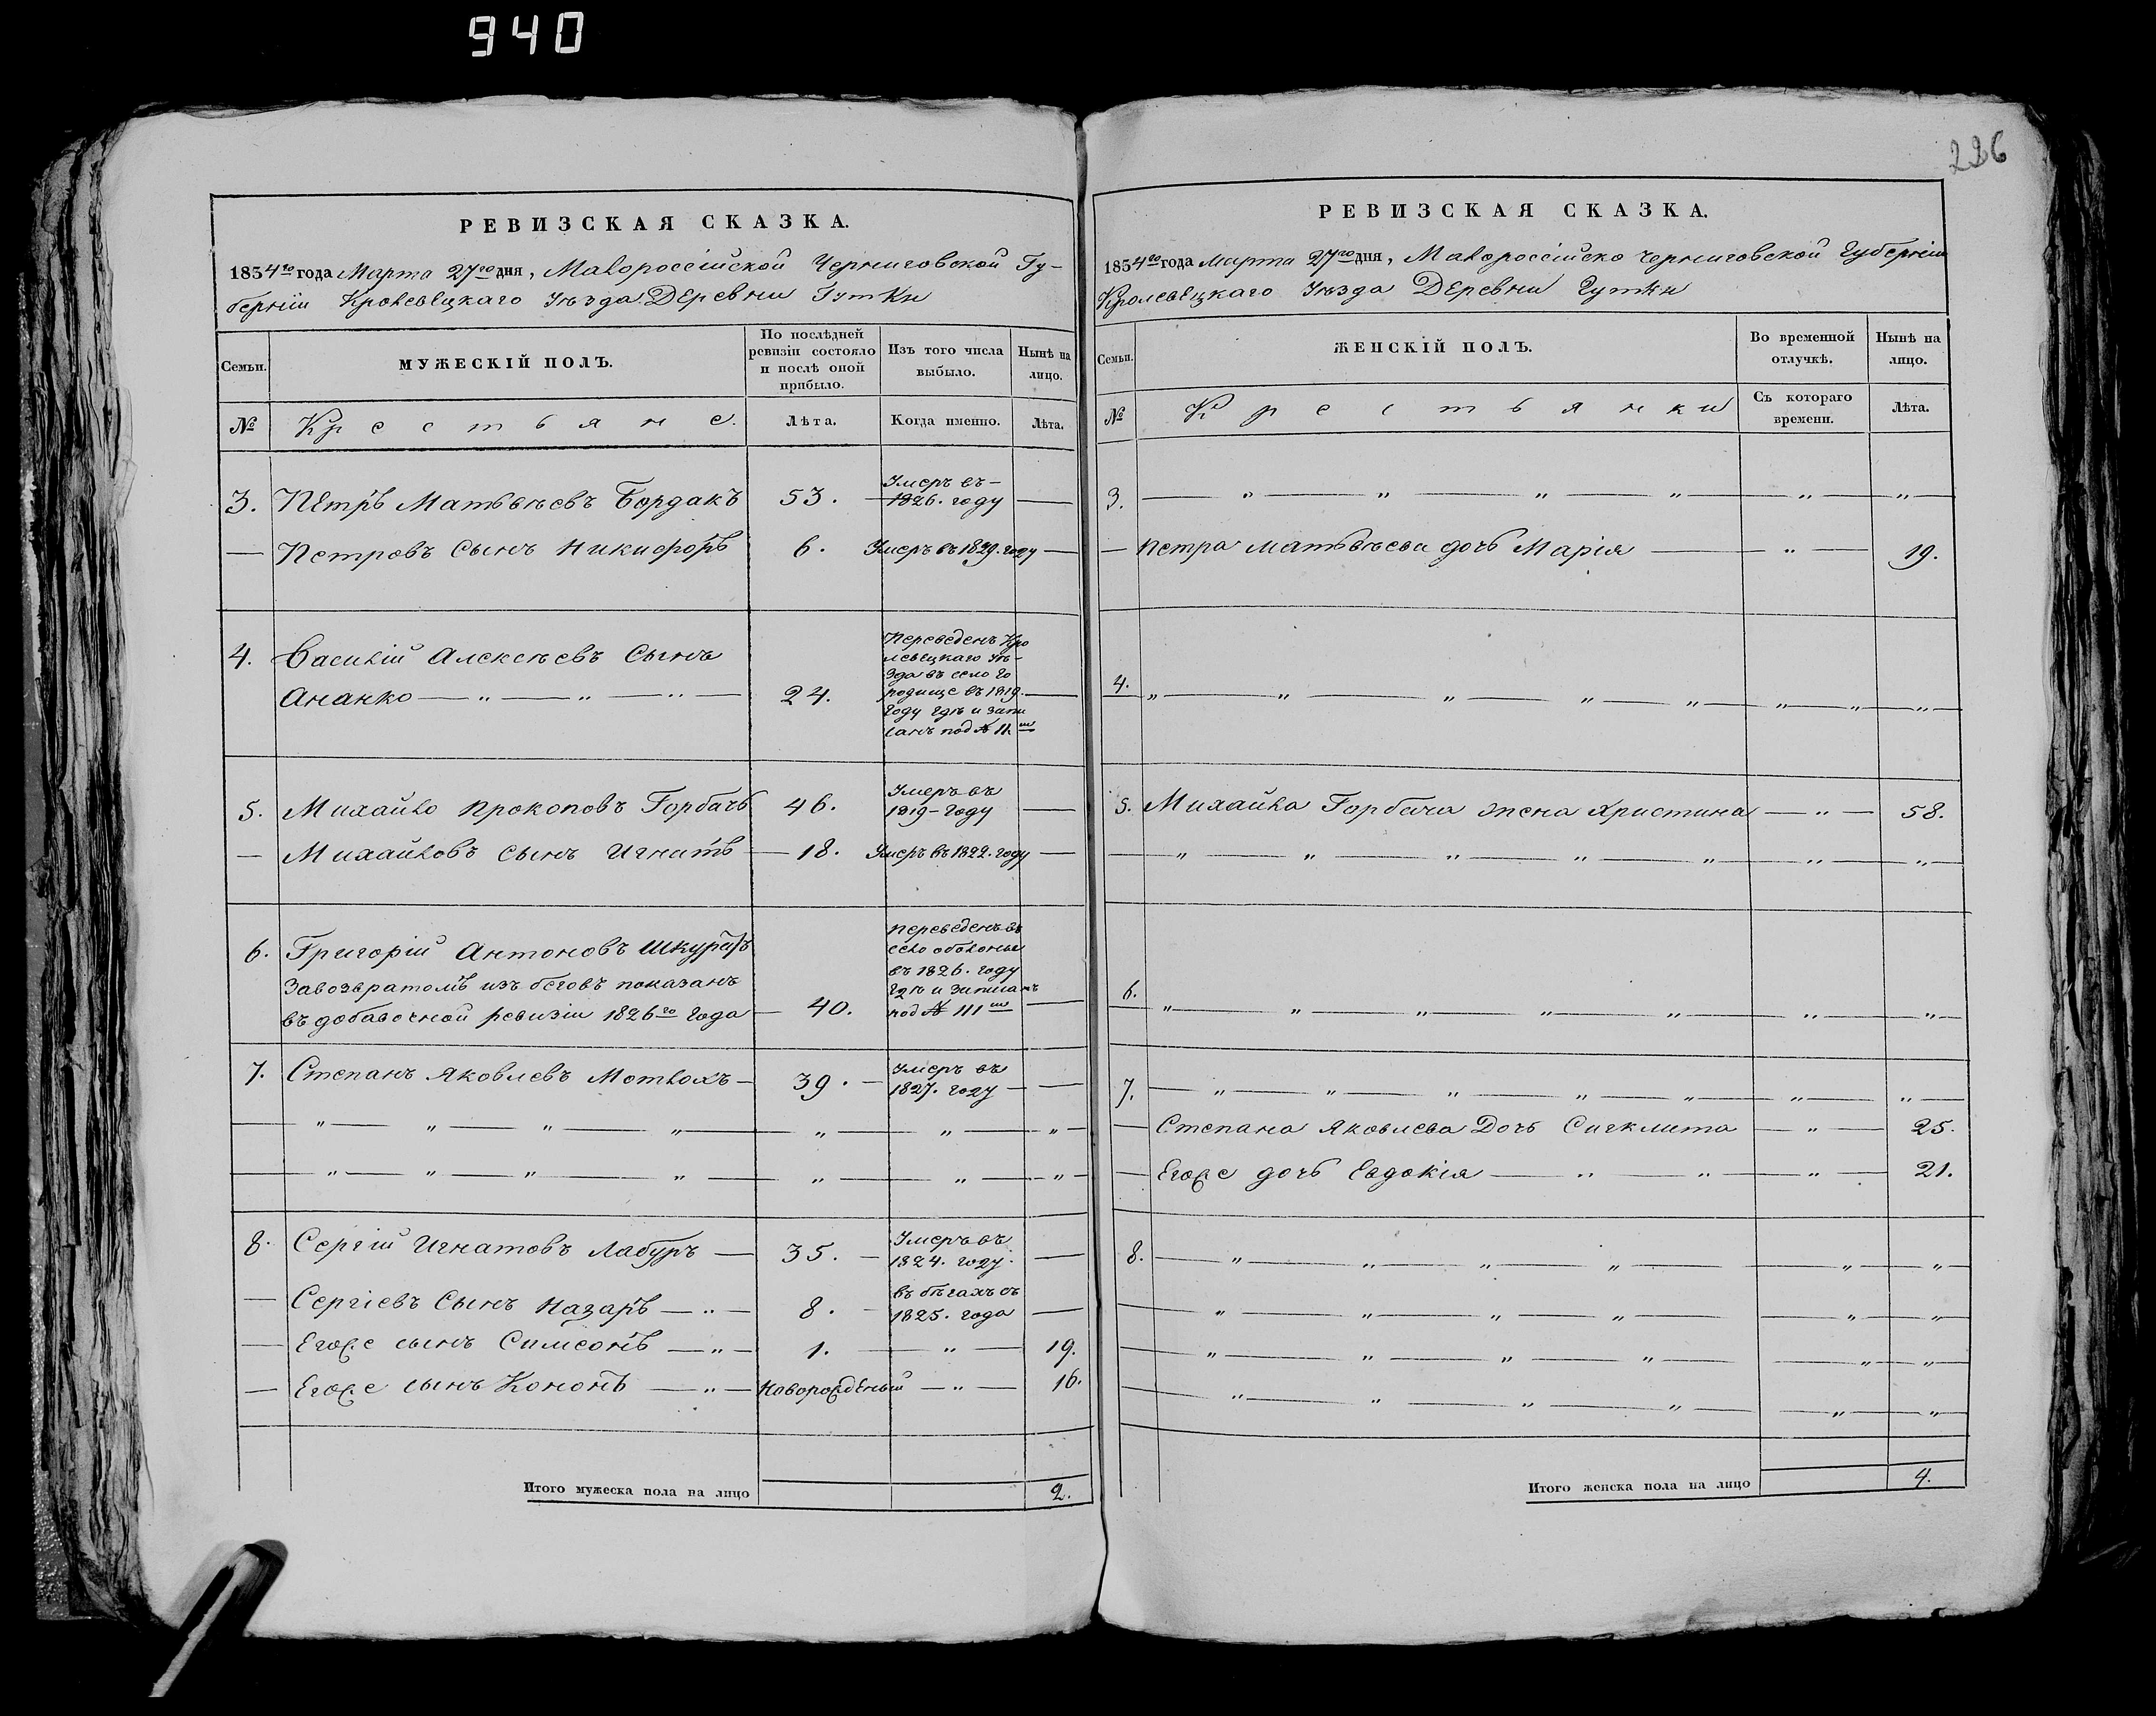 940
226
РЕВИЗСКАЯ СКАЗКА.
1834го года Марта 27го дня, Малороссійской Черниговской Гу-
берніи Кролевецкаго Уѣзда Деревни Гутки
Семьи.
МУЖЕСКІЙ ПОЛЪ.
По послѣдней ревизіи состояло и послѣ оной прибыло.
Изъ того числа выбыло.
Нынѣ на лицо.
№
Крестьяне.
Лѣта.
Когда именно.
Лѣта.
3. Петръ Матвѣевъ Бордакъ 53. Умеръ въ 1826. году —
— Петровъ Сынъ Никифоръ 6. Умеръ въ 1829. году —
4. Василій Алексѣевъ Сынъ
Ананко — „ — „ — „ — 24. —
Переведенъ Кро
левецкаго Уѣ-
зда въ село Го
родище въ 1819.
году гдѣ и запи
санъ под № 11.мъ
5. Михайло Прокоповъ Горбачь 46. Умеръ въ 1819 - году —
— Михайловъ сынъ Игнатъ — 18. Умеръ въ 1822. году —
6. Григорій Антоновъ Шкуратъ
Завозвратомъ изъ беговъ показанъ
въ добавочной ревизіи 1826го года — 40. —
переведенъ въ
село оболонье
въ 1826. году
Гдѣ и записанъ
под № 111мъ
7. Степанъ Яковлевъ Мотлохъ — 39. — Умеръ въ 1827. году — —
— „ — „ — „ — „ — „ — „ — „ —
— „ — „ — „ — „ — „ — „ — „ —
8. Сергій Игнатовъ Лабуръ — 35. — Умеръ въ 1824. году. —
— Сергіевъ Сынъ Назаръ — „ — 8. — въ бѣгахъ съ 1825. года —
— Егоже сынъ Симеонъ — „ — 1. — „ — 19.
— Егоже сынъ Кононъ — „ — Новорожденый — „ — 16.
Итого мужеска пола на лицо 2.
РЕВИЗСКАЯ СКАЗКА.
1834го года Марта 27го дня, Малороссійско Черниговской Губерніи
Кролевецкаго Уѣзда Деревни Гутки
Семьи.
ЖЕНСКІЙ ПОЛЪ.
Во временной отлучкѣ.
Нынѣ на лицо.
№
Крестьянки
Съ котораго времени.
Лѣта.
3. — „ — „ — „ — „ — „ — „ —
— Петра Матвѣева дочь Марія — „ — 19.
4. „ — „ — „ — „ — „ — „ — „ — „ —
5. Михайла Горбача жена Христина — „ — 58.
— „ — „ — „ — „ — „ — „ — „ —
6. „ — „ — „ — „ — „ — „ — „ —
7. — „ — „ — „ — „ — „ — „ — „ —
— Степана Яковлева Дочь Сигклита — „ — 25.
— Егоже дочь Евдокія — „ — „ — „ — 21.
8. — „ — „ — „ — „ — „ — „ —
— „ — „ — „ — „ — „ — „ —
— „ — „ — „ — „ — „ — „ —
— „ — „ — „ — „ — „ — „ —
Итого женска пола на лицо 4.